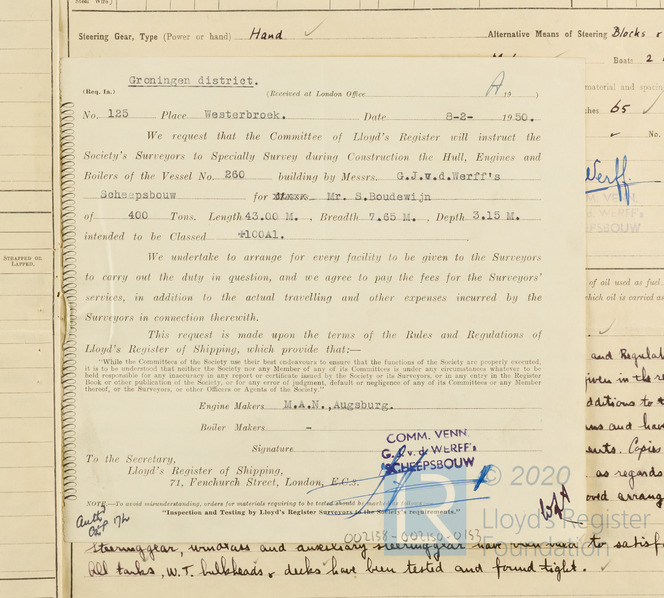 Steering Gear, Type (Power or hand) Hand ✓ Alternative Means of Steering Blocks
Boats 2
Groningen district.
(Req. In.) (Received at London Office 19 )
material and spacing
No. 125 Place Westerbroek. Date 8-2- 1950.
65 ✓
We request that the Committee of Lloyd's Register will instruct the
✓ No.
Society's Surveyors to Specially Survey during Construction the Hull, Engines and
Boilers of the Vessel No. 260 building by Messrs. G.J.v.d.Werff's
Werff.
Scheepsbouw for Mr. S.Boudewijn
COMM. VENN.
v.d. WERFF's
SCHEEPSBOUW
of 400 Tons. Length 43.00 M. , Breadth 7.65 M. , Depth 3.15 M.
intended to be Classed +100A1.
STRAPPED OR
LAPPED.
We undertake to arrange for every facility to be given to the Surveyors
to carry out the duty in question, and we agree to pay the fees for the Surveyors'
of oil used as fuel
services, in addition to the actual travelling and other expenses incurred by the
which oil is carried as
Surveyors in connection therewith.
This request is made upon the terms of the Rules and Regulations of
Lloyd's Register of Shipping, which provide that:—
and Regulat
"While the Committees of the Society use their best endeavours to ensure that the functions of the Society are properly executed,
it is to be understood that neither the Society nor any Member of any of its Committees is under any circumstances whatever to be
held responsible for any inaccuracy in any report or certificate issued by the Society or its Surveyors, or in any entry in the Register
Book or other publication of the Society, or for any error of judgment, default or negligence of any of its Committees or any Member
thereof, or the Surveyors, or other Officers or Agents of the Society."
given in the re
additions to
Engine Makers M.A.N.,Augsburg.
and have
Boiler Makers -
Copies
Signature
COMM. VENN.
G.J.v.d. WERFF's
SCHEEPSBOUW
To the Secretary,
Lloyd's Register of Shipping,
71, Fenchurch Street, London, E.C.3.
as regards
© 2020
NOTE—To avoid misunderstanding, orders for materials requiring to be tested should be marked as follows:—
"Inspection and Testing by Lloyd's Register Surveyors to the Society's requirements."
Lloyd's Register
Foundation
002158-002180-0153
Steering gear, windlass and auxiliary steering gear to satisf
All tanks, W.T. bulkheads & decks have been tested and found tight. ✓